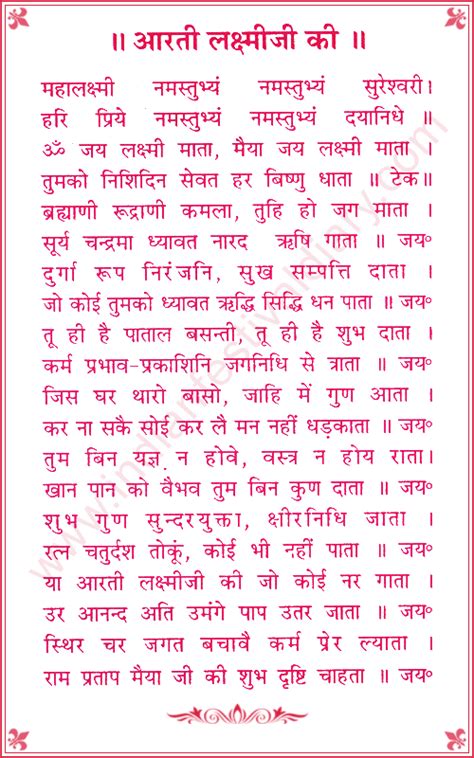 ॥ आरती लक्ष्मीजी की ॥
महालक्ष्मी नमस्तुभ्यं नमस्तुभ्यं सुरेश्वरी।
हरि प्रिये नमस्तुभ्यं नमस्तुभ्यं दयानिधे ॥
ॐ जय लक्ष्मी माता, मैया जय लक्ष्मी माता ।
तुमको निशिदिन सेवत हर बिष्णु धाता ॥ टेक॥
ब्रह्माणी रूद्राणी कमला, तुहि हो जग माता ।
सूर्य चन्द्रमा ध्यावत नारद ऋषि गाता ॥ जय॰
दुर्गा रूप निरंजनि, सुख सम्पत्ति दाता ।
जो कोई तुमको ध्यावत ऋद्धि सिद्धि धन पाता ॥ जय॰
तू ही है पाताल बसन्ती, तू ही है शुभ दाता ।
कर्म प्रभाव-प्रकाशिनि जगनिधि से त्राता ॥ जय॰
जिस घर थारो बासो, जाहि में गुण आता ।
कर ना सकै सोई कर लै मन नहीं धड़काता ॥ जय॰
तुम बिन यज्ञ न होवे, वस्त्र न होय राता।
खान पान को वैभव तुम बिन कुण दाता ॥ जय॰
शुभ गुण सुन्दरयुक्ता, क्षीरनिधि जाता ।
रत्न चतुर्दश तोकूं, कोई भी नहीं पाता ॥ जय॰
या आरती लक्ष्मीजी की जो कोई नर गाता ।
उर आनन्द अति उमंगे पाप उतर जाता ॥ जय॰
स्थिर चर जगत बचावै कर्म प्रेर ल्याता ।
राम प्रताप मैया जी की शुभ दृष्टि चाहता ॥ जय॰
www.indianfestivaldiary.com